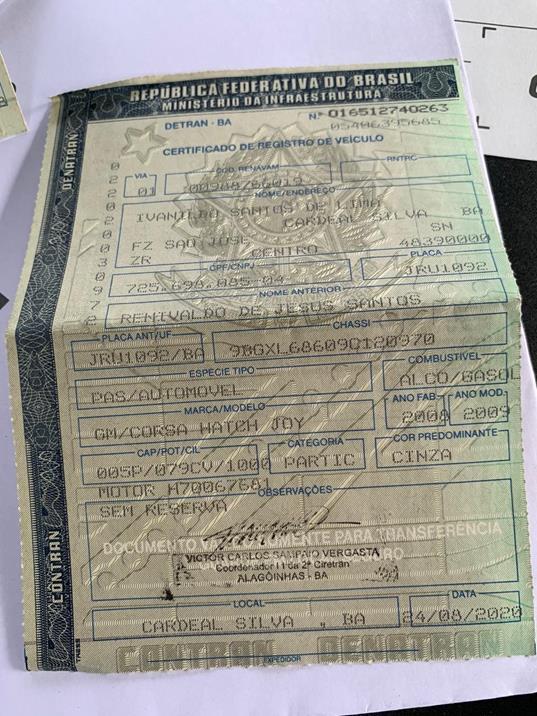 REPÚBLICA FEDERATIVA DO BRASIL
MINISTÉRIO DA INFRAESTRUTURA
DETRAN - BA
N.º 016512740263
05406395685
CERTIFICADO DE REGISTRO DE VEÍCULO
VIA
CÓD. RENAVAM
RNTRC
01
NOME/ENDEREÇO
IVANILDO SANTOS DE LIMA
CARDEAL SILVA BA
FZ SAO JOSE SN
ZR CENTRO 48390000
CPF/CNPJ
PLACA
725.698.085-04
JRW1092
NOME ANTERIOR
RENIVALDO DE JESUS SANTOS
PLACA ANT/UF
CHASSI
JRW1092/BA
9BGXL68609C120970
ESPÉCIE TIPO
COMBUSTÍVEL
PAS/AUTOMOVEL
ALCO/GASOL
MARCA/MODELO
ANO FAB.
ANO MOD.
GM/CORSA HATCH JOY
2008
2009
CAP/POT/CIL
CATEGORIA
COR PREDOMINANTE
005P/079CV/1000
PARTIC
CINZA
MOTOR M70067681
OBSERVAÇÕES
SEM RESERVA
DOCUMENTO PARA TRANSFERÊNCIA
VICTOR CARLOS SAMPAIO VERGASTA
Coordenador II da 2ª Ciretran
ALAGOINHAS - BA
LOCAL
DATA
CARDEAL SILVA , BA
24/08/2020
CONTRAN DENATRAN
EXPEDIDOR
DENATRAN
CONTRAN